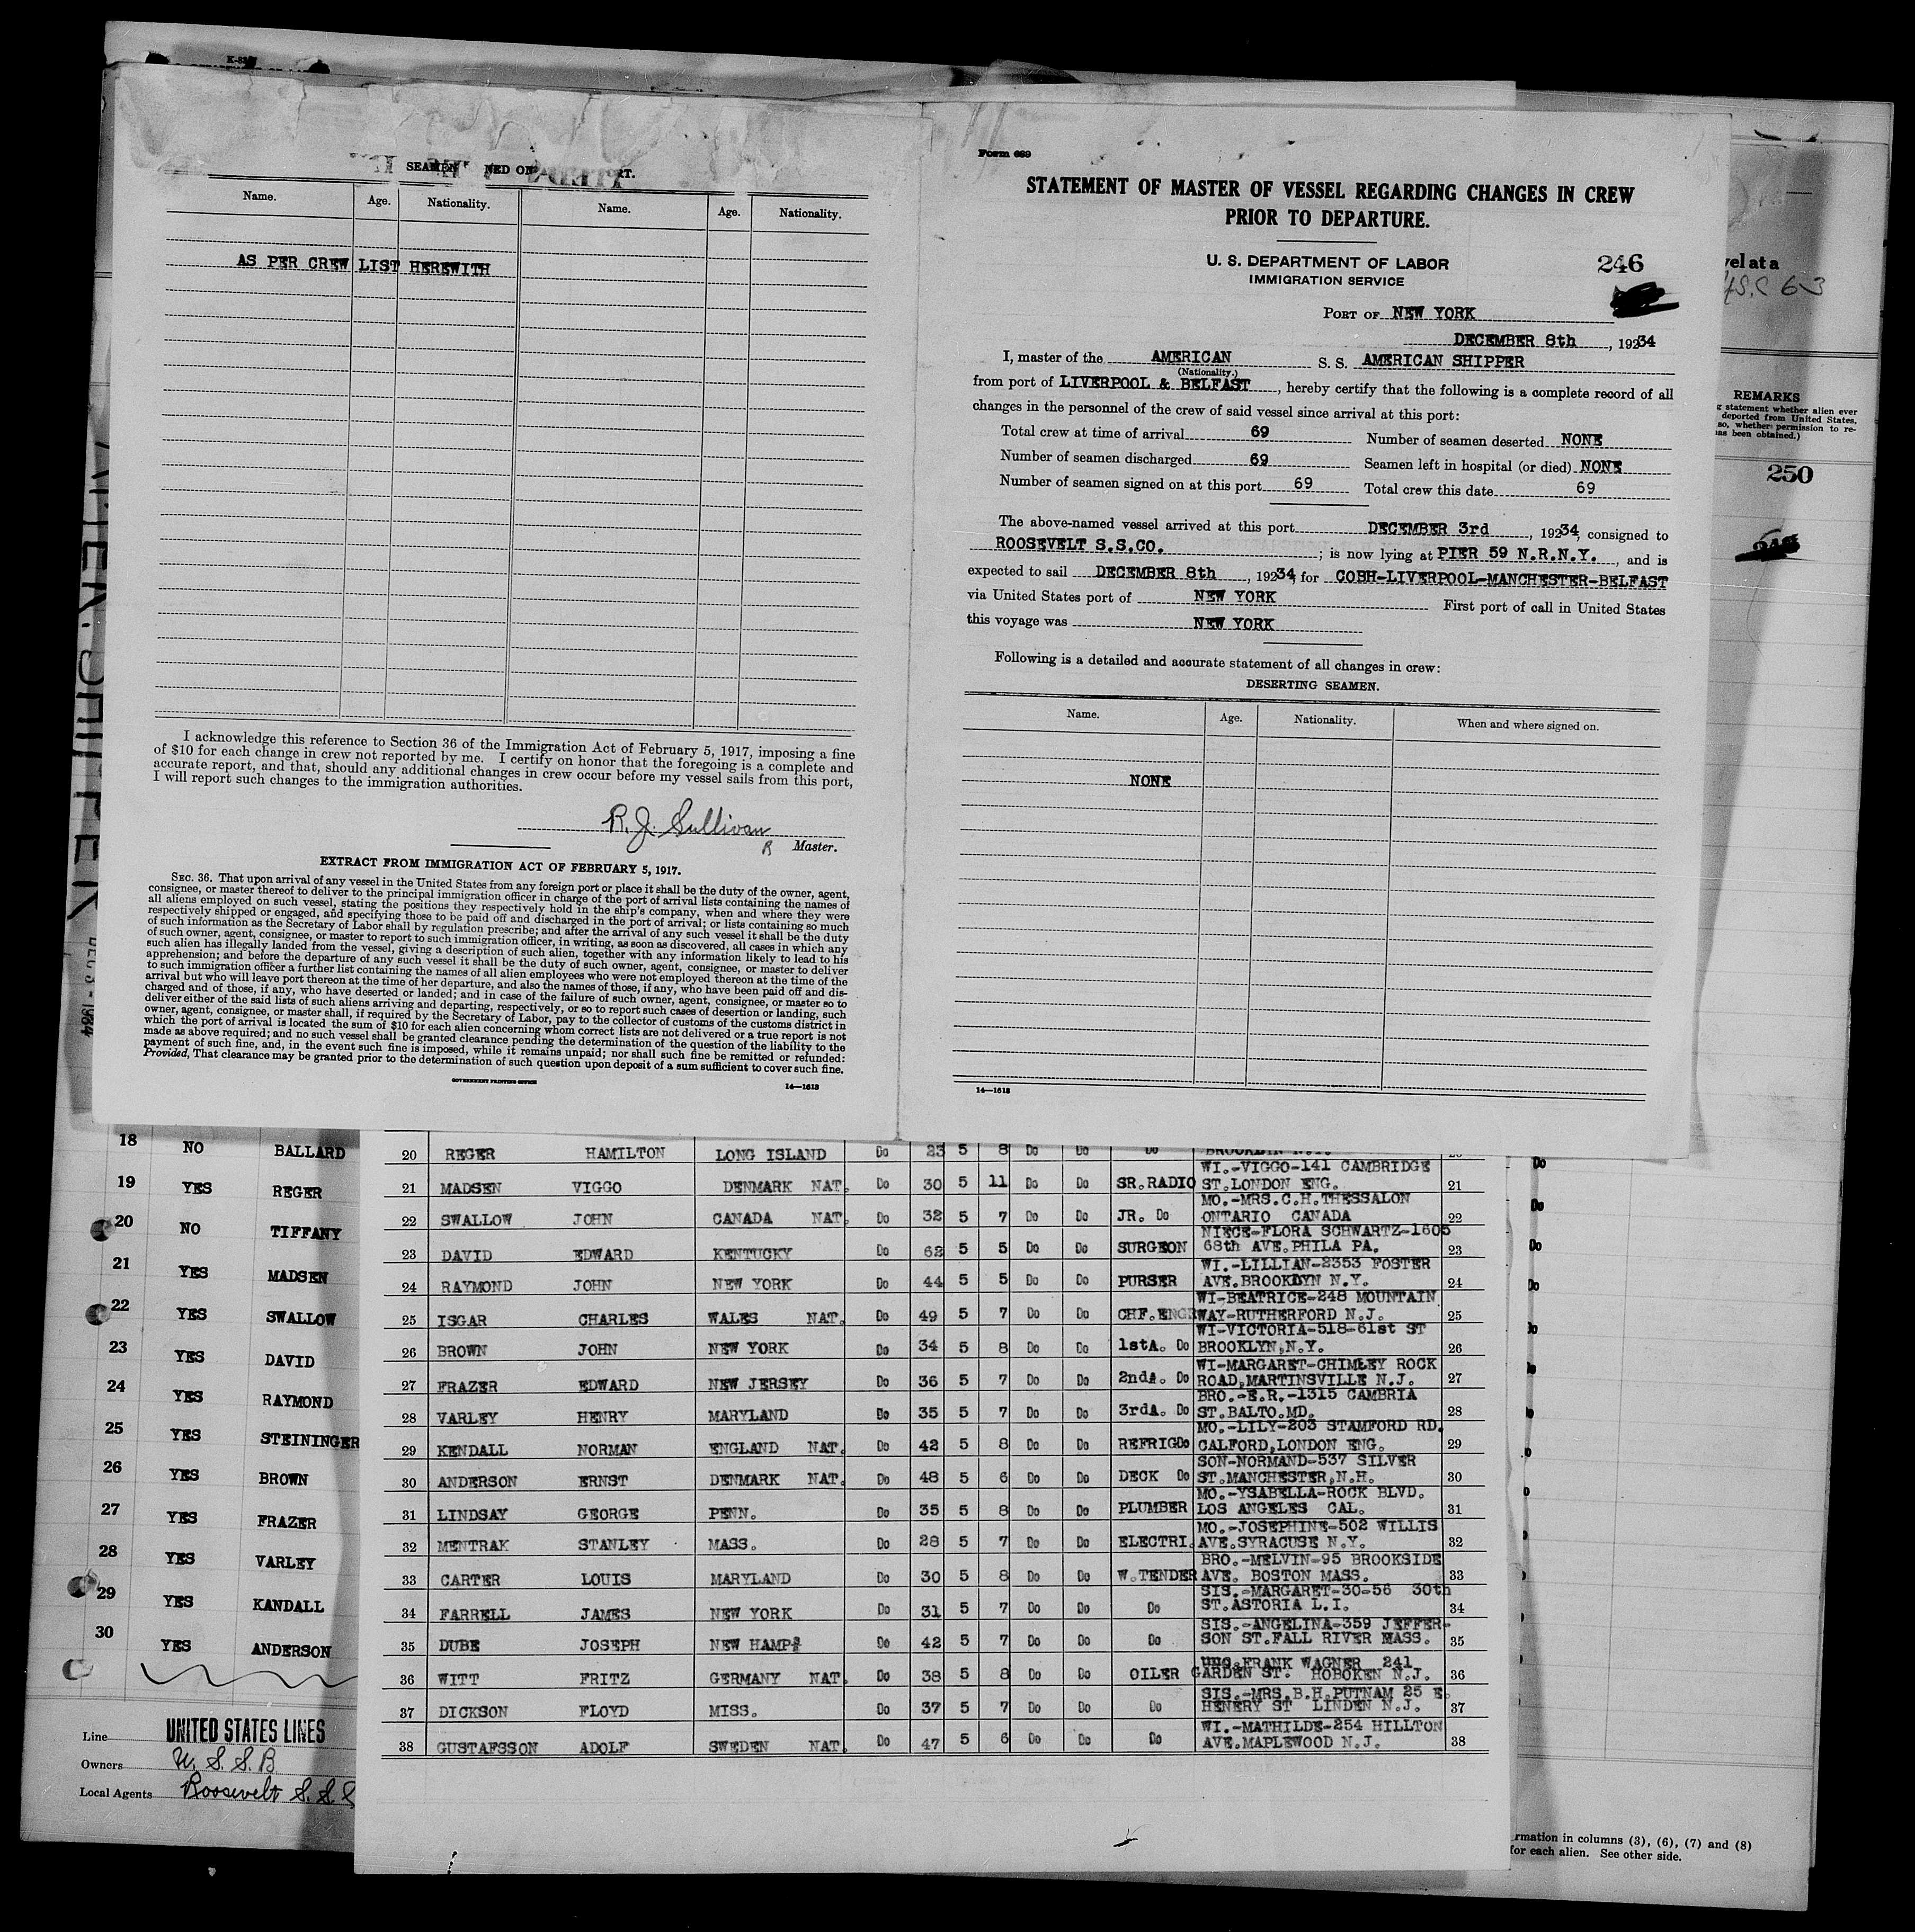 SEAMEN NED ON RT.
Name. Age. Nationality. Name. Age. Nationality.
AS PER CREW LIST HEREWITH
I acknowledge this reference to Section 36 of the Immigration Act of February 5, 1917, imposing a fine
of $10 for each change in crew not reported by me. I certify on honor that the foregoing is a complete and
accurate report, and that, should any additional changes in crew occur before my vessel sails from this port,
I will report such changes to the immigration authorities.
R. J. Sullivan
Master.
EXTRACT FROM IMMIGRATION ACT OF FEBRUARY 5, 1917.
SEC. 36. That upon arrival of any vessel in the United States from any foreign port or place it shall be the duty of the owner, agent,
consignee, or master thereof to deliver to the principal immigration officer in charge of the port of arrival lists containing the names of
all aliens employed on such vessel, stating the positions they respectively hold in the ship's company, when and where they were
respectively shipped or engaged, and specifying those to be paid off and discharged in the port of arrival; or lists containing so much
of such information as the Secretary of Labor shall by regulation prescribe; and after the arrival of any such vessel it shall be the duty
of such owner, agent, consignee, or master to report to such immigration officer, in writing, as soon as discovered, all cases in which any
such alien has illegally landed from the vessel, giving a description of such alien, together with any information likely to lead to his
apprehension; and before the departure of any such vessel it shall be the duty of such owner, agent, consignee, or master to deliver
to such immigration officer a further list containing the names of all alien employees who were not employed thereon at the time of the
arrival but who will leave port thereon at the time of her departure, and also the names of those, if any, who have been paid off and dis-
charged and of those, if any, who have deserted or landed; and in case of the failure of such owner, agent, consignee, or master so to
deliver either of the said lists of such aliens arriving and departing, respectively, or so to report such cases of desertion or landing, such
owner, agent, consignee, or master shall, if required by the Secretary of Labor, pay to the collector of customs of the customs district in
which the port of arrival is located the sum of $10 for each alien concerning whom correct lists are not delivered or a true report is not
made as above required; and no such vessel shall be granted clearance pending the determination of the question of the liability to the
payment of such fine, and, in the event such fine is imposed, while it remains unpaid; nor shall such fine be remitted or refunded:
Provided, That clearance may be granted prior to the determination of such question upon deposit of a sum sufficient to cover such fine.
GOVERNMENT PRINTING OFFICE 14—1613
Form 689
STATEMENT OF MASTER OF VESSEL REGARDING CHANGES IN CREW
PRIOR TO DEPARTURE.
U. S. DEPARTMENT OF LABOR
IMMIGRATION SERVICE
246
PORT OF NEW YORK
DECEMBER 8th, 19234
I, master of the AMERICAN S. S. AMERICAN SHIPPER
(Nationality.)
from port of LIVERPOOL & BELFAST, hereby certify that the following is a complete record of all
changes in the personnel of the crew of said vessel since arrival at this port:
Total crew at time of arrival 69 Number of seamen deserted NONE
Number of seamen discharged 69 Seamen left in hospital (or died) NONE
Number of seamen signed on at this port 69 Total crew this date 69
The above-named vessel arrived at this port DECEMBER 3rd, 19234, consigned to
ROOSEVELT S.S.CO.; is now lying at PIER 59 N.R.N.Y., and is
expected to sail DECEMBER 8th, 19234, for COBH-LIVERPOOL-MANCHESTER-BELFAST
via United States port of NEW YORK First port of call in United States
this voyage was NEW YORK
Following is a detailed and accurate statement of all changes in crew:
DESERTING SEAMEN.
Name. Age. Nationality. When and where signed on.
NONE
14—1613
vel at a
REMARKS
statement whether alien ever
deported from United States,
so, whether permission to re-
has been obtained.)
250
DEC 3 - 1934
18 NO BALLARD
19 YES REGER
20 NO TIFFANY
21 YES MADSEN
22 YES SWALLOW
23 YES DAVID
24 YES RAYMOND
25 YES STEININGER
26 YES BROWN
27 YES FRAZER
28 YES VARLEY
29 YES KANDALL
30 YES ANDERSON
Line UNITED STATES LINES
Owners U. S. S. B
Local Agents Roosevelt S. S.
20 REGER HAMILTON LONG ISLAND Do 23 5 8 Do Do Do BROOKLYN N.Y.
21 MADSEN VIGGO DENMARK NAT. Do 30 5 11 Do Do SR.RADIO WI.-VIGGO-141 CAMBRIDGE
ST.LONDON ENG. 21
22 SWALLOW JOHN CANADA NAT. Do 32 5 7 Do Do JR. Do MO.-MRS.C.H.THESSALON
ONTARIO CANADA 22
23 DAVID EDWARD KENTUCKY Do 62 5 5 Do Do SURGEON NIECE-FLORA SCHWARTZ-1605
68th AVE.PHILA PA. 23
24 RAYMOND JOHN NEW YORK Do 44 5 5 Do Do PURSER WI.-LILLIAN-2353 FOSTER
AVE.BROOKLYN N.Y. 24
25 ISGAR CHARLES WALES NAT. Do 49 5 7 Do Do CHF.ENGR WI-BEATRICE-248 MOUNTAIN
WAY-RUTHERFORD N.J. 25
26 BROWN JOHN NEW YORK Do 34 5 8 Do Do 1stA. Do WI-VICTORIA-518-61st ST
BROOKLYN,N.Y. 26
27 FRAZER EDWARD NEW JERSEY Do 36 5 7 Do Do 2ndA. Do WI-MARGARET-CHIMLEY ROCK
ROAD,MARTINSVILLE N.J. 27
28 VARLEY HENRY MARYLAND Do 35 5 7 Do Do 3rdA. Do BRO.-E.R.-1315 CAMBRIA
ST.BALTO.MD. 28
29 KENDALL NORMAN ENGLAND NAT. Do 42 5 8 Do Do REFRIGDo MO.-LILY-203 STAMFORD RD.
CALFORD,LONDON ENG. 29
30 ANDERSON ERNST DENMARK NAT. Do 48 5 6 Do Do DECK Do SON-NORMAND-537 SILVER
ST.MANCHESTER,N.H. 30
31 LINDSAY GEORGE PENN. Do 35 5 8 Do Do PLUMBER MO.-YSABELLA-ROCK BLVD.
LOS ANGELES CAL. 31
32 MENTRAK STANLEY MASS. Do 28 5 7 Do Do ELECTRI. MO.-JOSEPHINE-502 WILLIS
AVE.SYRACUSE N.Y. 32
33 CARTER LOUIS MARYLAND Do 30 5 8 Do Do W.TENDER BRO.-MELVIN-95 BROOKSIDE
AVE. BOSTON MASS. 33
34 FARRELL JAMES NEW YORK Do 31 5 7 Do Do Do SIS.-MARGARET-30-56 30th
ST.ASTORIA L.I. 34
35 DUBE JOSEPH NEW HAMPS Do 42 5 7 Do Do Do SIS.-ANGELINA-359 JEFFER-
SON ST.FALL RIVER MASS. 35
36 WITT FRITZ GERMANY NAT. Do 38 5 8 Do Do OILER UNC.FRANK WAGNER 241
GARDEN ST. HOBOKEN N.J. 36
37 DICKSON FLOYD MISS. Do 37 5 7 Do Do Do SIS.-MRS.B.H.PUTNAM 25 E.
HENERY ST LINDEN N.J. 37
38 GUSTAFSSON ADOLF SWEDEN NAT. Do 47 5 6 Do Do Do WI.-MATHILDE-254 HILLTON
AVE.MAPLEWOOD N.J. 38
rmation in columns (3), (6), (7) and (8)
for each alien. See other side.